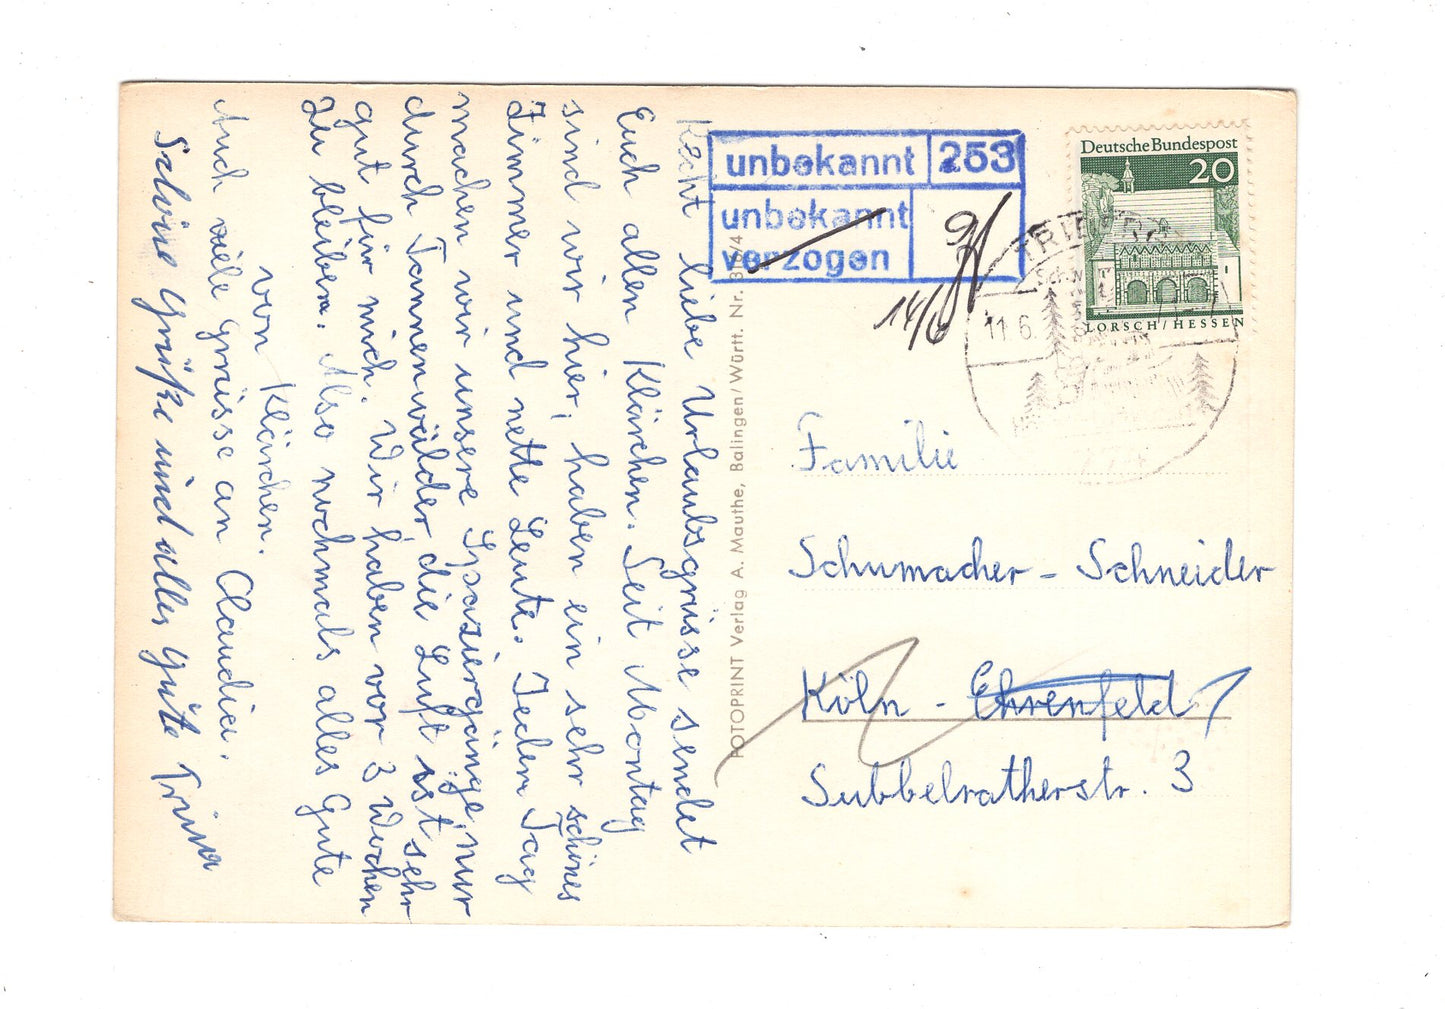 Recht liebe Urlaubsgrüsse sendet
Euch allen Klärchen. Seit Montag
sind wir hier, haben ein sehr schönes
Zimmer und nette Leute. Jeden Tag
machen wir unsere Spaziergänge, nur
durch Tannenwälder, die Luft ist sehr
gut für mich. Wir haben vor 3 Wochen
zu bleiben. Also nochmals alles Gute
von Klärchen.
Auch viele Grüsse an Claudia.
Grüße und alles Gute Trina
FOTOPRINT Verlag A. Mauthe, Balingen/Württ. Nr.
unbekannt 253
unbekannt
verzogen
14/6
Deutsche Bundespost
20
LORSCH/HESSEN
TRIBERG
11.6.
Familie
Schumacher - Schneider
Köln - Ehrenfeld
Subbelratherstr. 3